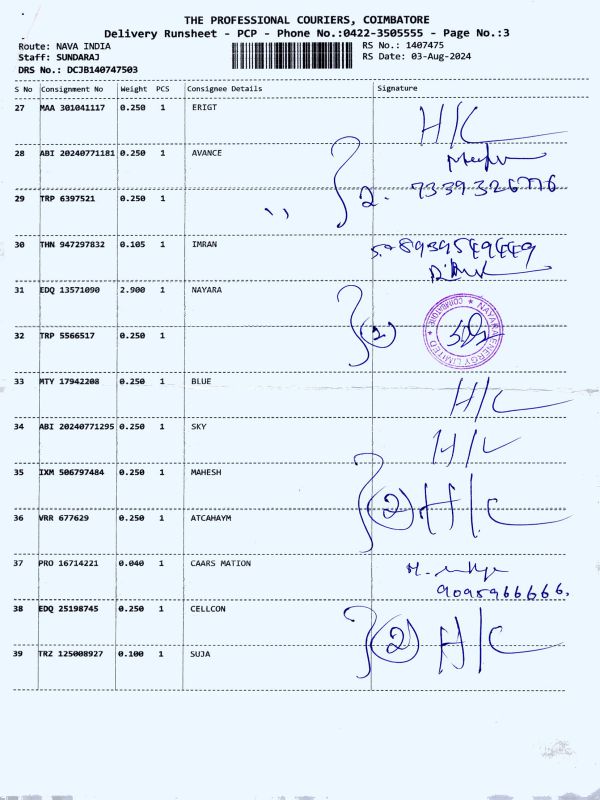 THE PROFESSIONAL COURIERS, COIMBATORE
Delivery Runsheet - PCP - Phone No.:0422-3505555 - Page No.:3
Route: NAVA INDIA RS No.: 1407475
Staff: SUNDARAJ RS Date: 03-Aug-2024
DRS No.: DCJB140747503
S No Consignment No Weight PCS Consignee Details Signature
27 MAA 301041117 0.250 1 ERIGT H/C
28 ABI 20240771181 0.250 1 AVANCE
29 TRP 6397521 0.250 1 2. 7339326776
30 THN 947297832 0.105 1 IMRAN
31 EDQ 13571090 2.900 1 NAYARA
NAYARA ENERGY LIMITED ★ COIMBATORE ★
32 TRP 5566517 0.250 1 2
33 MTY 17942208 0.250 1 BLUE H/C
34 ABI 20240771295 0.250 1 SKY H/C
35 IXM 506797484 0.250 1 MAHESH 2 H/C
36 VRR 677629 0.250 1 ATCAHAYM
37 PRO 16714221 0.040 1 CAARS MATION
9095966666.
38 EDQ 25198745 0.250 1 CELLCON 2 H/C
39 TRZ 125008927 0.100 1 SUJA